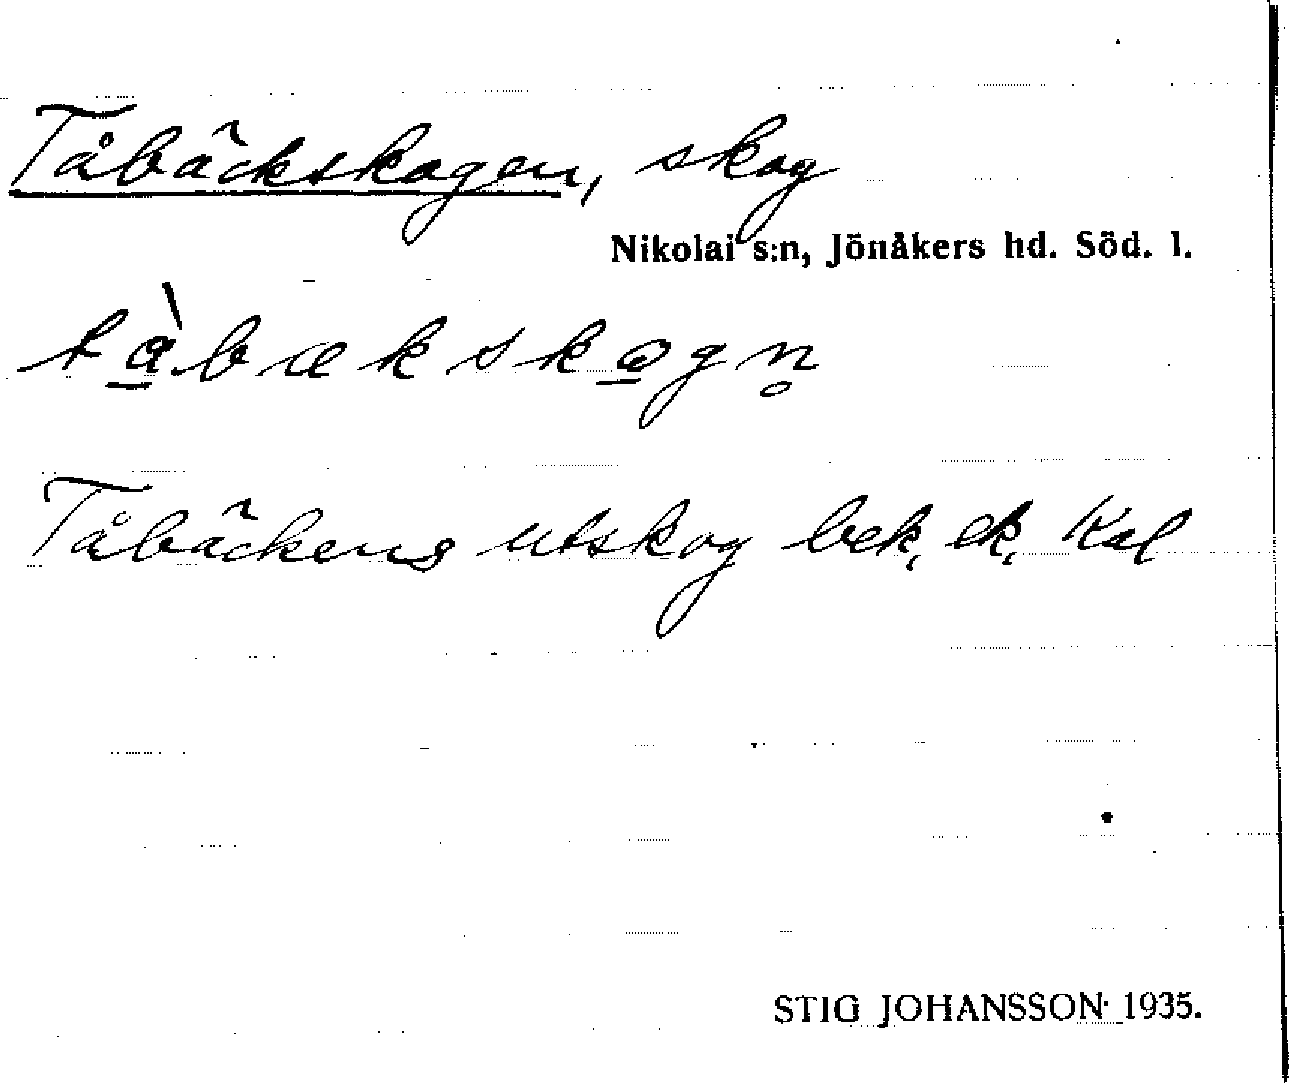 Tåbäckskogen, skog
Nikolai s:n, Jönåkers hd. Söd. l.
tà̱bæksko̱gn̥
Tåbäckens utskog bek, ek. Kal
STIG JOHANSSON 1935.